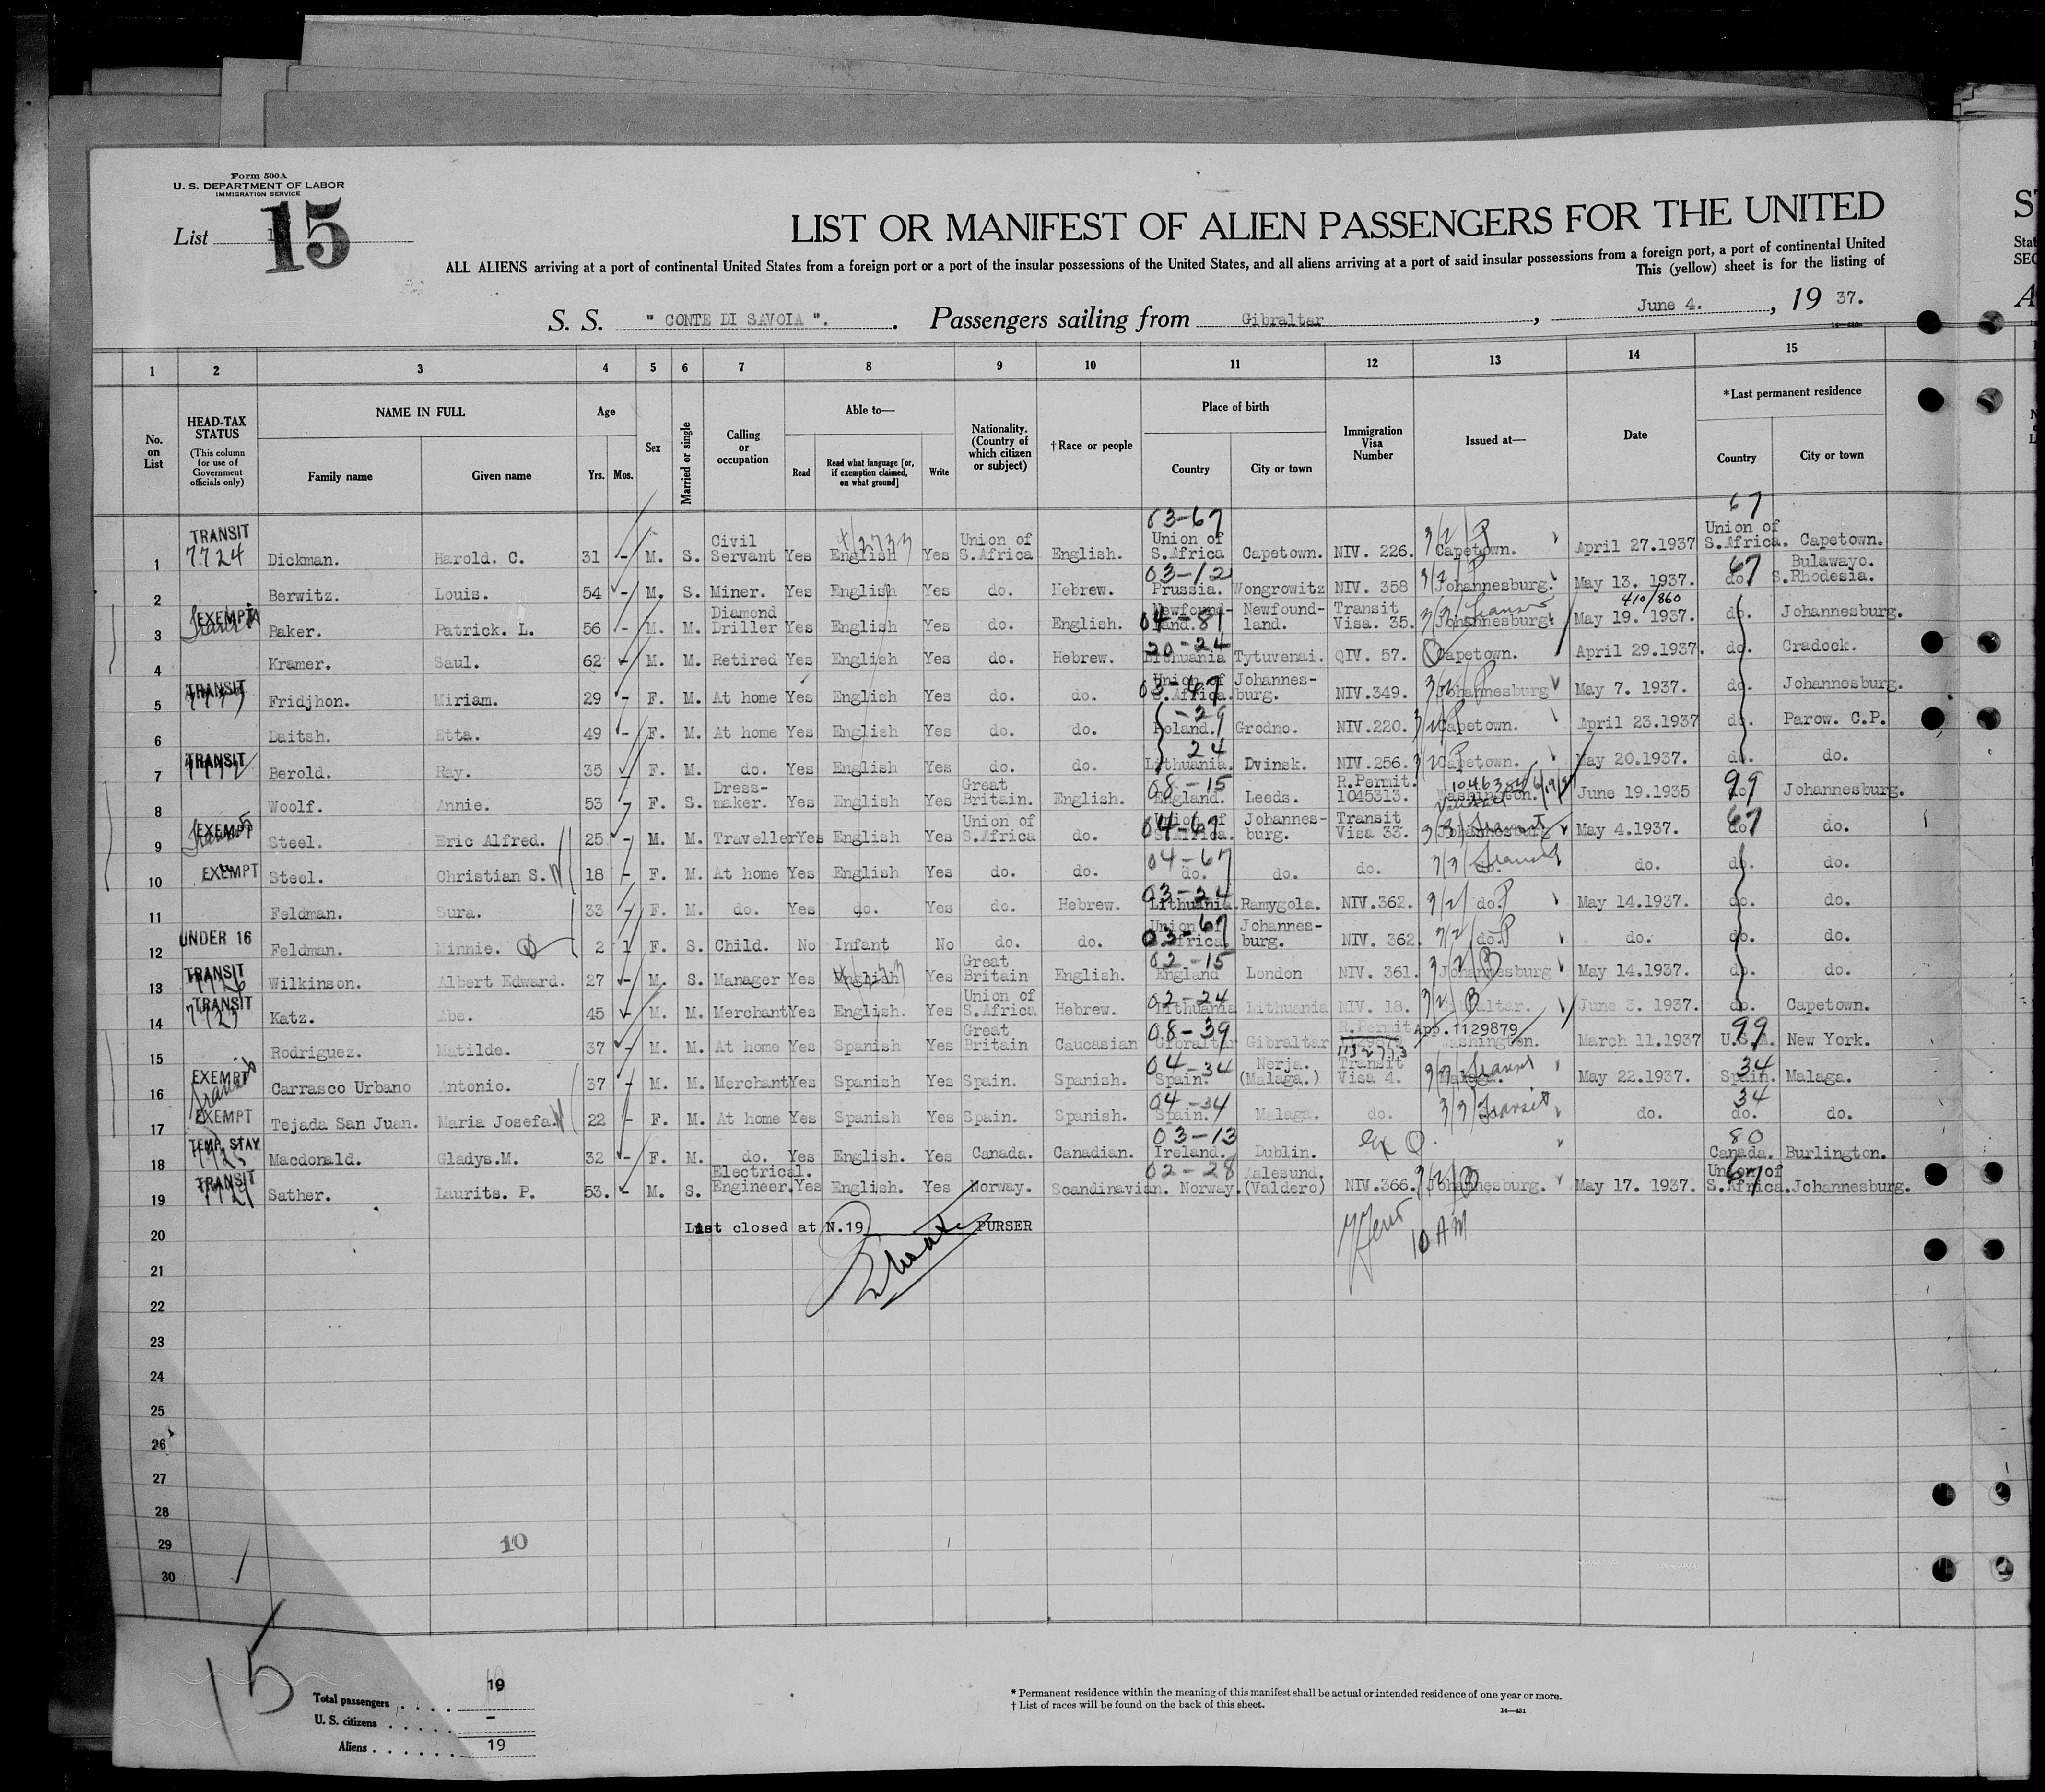 Form 500A
U. S. DEPARTMENT OF LABOR
IMMIGRATION SERVICE
List 15
LIST OR MANIFEST OF ALIEN PASSENGERS FOR THE UNITED
ALL ALIENS arriving at a port of continental United States from a foreign port or a port of the insular possessions of the United States, and all aliens arriving at a port of said insular possessions from a foreign port, a port of continental United
This (yellow) sheet is for the listing of
S. S. " CONTE DI SAVOIA ". Passengers sailing from Gibraltar, June 4., 19 37.
1 2 3 4 5 6 7 8 9 10 11 12 13 14 15
No. on List
HEAD-TAX STATUS (This column for use of Government officials only)
NAME IN FULL Family name Given name
Age Yrs. Mos.
Sex
Married or single
Calling or occupation
Able to— Read Read what language [or, if exemption claimed, on what ground] Write
Nationality. (Country of which citizen or subject)
† Race or people
Place of birth Country City or town
Immigration Visa Number
Issued at—
Date
*Last permanent residence Country City or town
1 TRANSIT 7724 Dickman. Harold. C. 31 - M. S. Civil Servant Yes English Yes Union of S.Africa English. 03-67 Union of S.Africa Capetown. NIV. 226. 3/2/P Capetown. April 27.1937 67 Union of S.Africa. Capetown.
2 Berwitz. Louis. 54 - M. S. Miner. Yes English Yes do. Hebrew. 03-12 Prussia. Wongrowitz NIV. 358 Johannesburg. May 13. 1937. 67 do. Bulawayo. S.Rhodesia.
3 EXEMPT Baker. Patrick. L. 56 - M. M. Diamond Driller Yes English Yes do. English. 04-81 Newfoundland. Newfound-land. Transit Visa. 35. 3/3/Transit Johannesburg. 410/860 May 19. 1937. do. Johannesburg.
4 Kramer. Saul. 62 - M. M. Retired Yes English Yes do. Hebrew. 20-24 Lithuania Tytuvenai. QIV. 57. Capetown. April 29.1937. do. Cradock.
5 TRANSIT Fridjhon. Miriam. 29 - F. M. At home Yes English Yes do. do. 03-67 Union of S.Africa. Johannes-burg. NIV.349. Johannesburg May 7. 1937. do. Johannesburg.
6 Daitsh. Etta. 49 - F. M. At home Yes English Yes do. do. -29 Poland. Grodno. NIV.220. Capetown. April 23.1937 do. Parow. C.P.
7 TRANSIT Berold. Ray. 35 F. M. do. Yes English Yes do. do. 24 Lithuania. Dvinsk. NIV.256. Capetown. May 20.1937. do. do.
8 Woolf. Annie. 53 - F. S. Dress-maker. Yes English Yes Great Britain. English. 08-15 England. Leeds. R.Permit. 1045313. Washington. June 19.1935 99 do. Johannesburg.
9 EXEMPT Steel. Eric Alfred. 25 - M. M. Traveller Yes English Yes Union of S.Africa do. 04-67 Union of S.Africa. Johannes-burg. Transit Visa 33. 3/3/Transit Johannesburg May 4.1937. 67 do. do.
10 EXEMPT Steel. Christian S. 18 - F. M. At home Yes English Yes do. do. 04-67 do. do. do. 3/3/Transit do. do. do. do.
11 Feldman. Sura. 33 - F. M. do. Yes do. Yes do. Hebrew. 03-24 Lithuania. Ramygola. NIV.362. 3/2/ do. P May 14.1937. do. do.
12 UNDER 16 Feldman. Minnie. 2 1 F. S. Child. No Infant No do. do. 03-67 Union of S.Africa. Johannes-burg. NIV. 362. 3/2/ do. P do. do. do.
13 TRANSIT Wilkinson. Albert Edward. 27 - M. S. Manager Yes English Yes Great Britain English. 02-15 England London NIV. 361. Johannesburg May 14.1937. do. do.
14 TRANSIT 7723 Katz. Abe. 45 - M. M. Merchant Yes English. Yes Union of S.Africa Hebrew. 02-24 Lithuania Lithuania NIV. 18. June 3. 1937. do. Capetown.
15 Rodriguez. Matilde. 37 - M. M. At home Yes Spanish Yes Great Britain Caucasian 08-39 Gibraltar Gibraltar R.Permit App.1129879 Washington. March 11.1937 99 U.S.A. New York.
16 EXEMPT Transit Carrasco Urbano Antonio. 37 - M. M. Merchant Yes Spanish Yes Spain. Spanish. 04-34 Spain. Nerja. (Malaga.) Transit Visa 4. 3/3/Transit Malaga. May 22.1937. 34 Spain. Malaga.
17 EXEMPT Tejada San Juan. Maria Josefa. 22 - F. M. At home Yes Spanish Yes Spain. Spanish. 04-34 Spain. Malaga. do. 3/3/Transit do. 34 do. do.
18 TEMP. STAY Macdonald. Gladys.M. 32 - F. M. do. Yes English. Yes Canada. Canadian. 03-13 Ireland. Dublin. 80 Canada. Burlington.
19 TRANSIT Sather. Laurits. P. 53. - M. S. Electrical. Engineer. Yes English. Yes Norway. Scandinavian. 02-28 Norway. Aalesund. (Valdero) NIV.366. Johannesburg. May 17. 1937. 67 Union of S.Africa. Johannesburg.
20 List closed at N.19 PURSER 10 AM
21
22
23
24
25
26
27
28
29 10
30
15
Total passengers . . . . 19
U. S. citizens . . . . . -
Aliens . . . . . . 19
* Permanent residence within the meaning of this manifest shall be actual or intended residence of one year or more.
† List of races will be found on the back of this sheet.
14—431